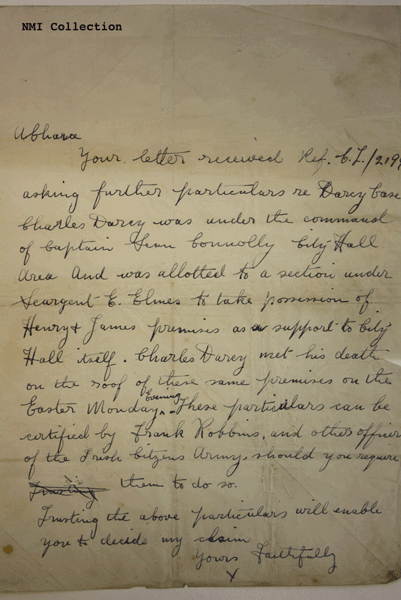 NMI Collection
A Chara
Your letter received Ref. C.F./219
asking further particulars re Darcy Case
Charles Darcy was under the command
of Captain Sean Connolly City Hall
Area And was allotted to a section under
Seargent E. Elmes to take possession of
Henry & James premises as a support to City
Hall itself. Charles Darcy met his death
on the roof of these same premises on the
Easter Monday evening. These particulars can be
certified by Frank Robbins, and other officers
of the Irish Citizens Army, should you require
them to do so.
Trusting the above particulars will enable
you to decide my claim
Yours Faithfully